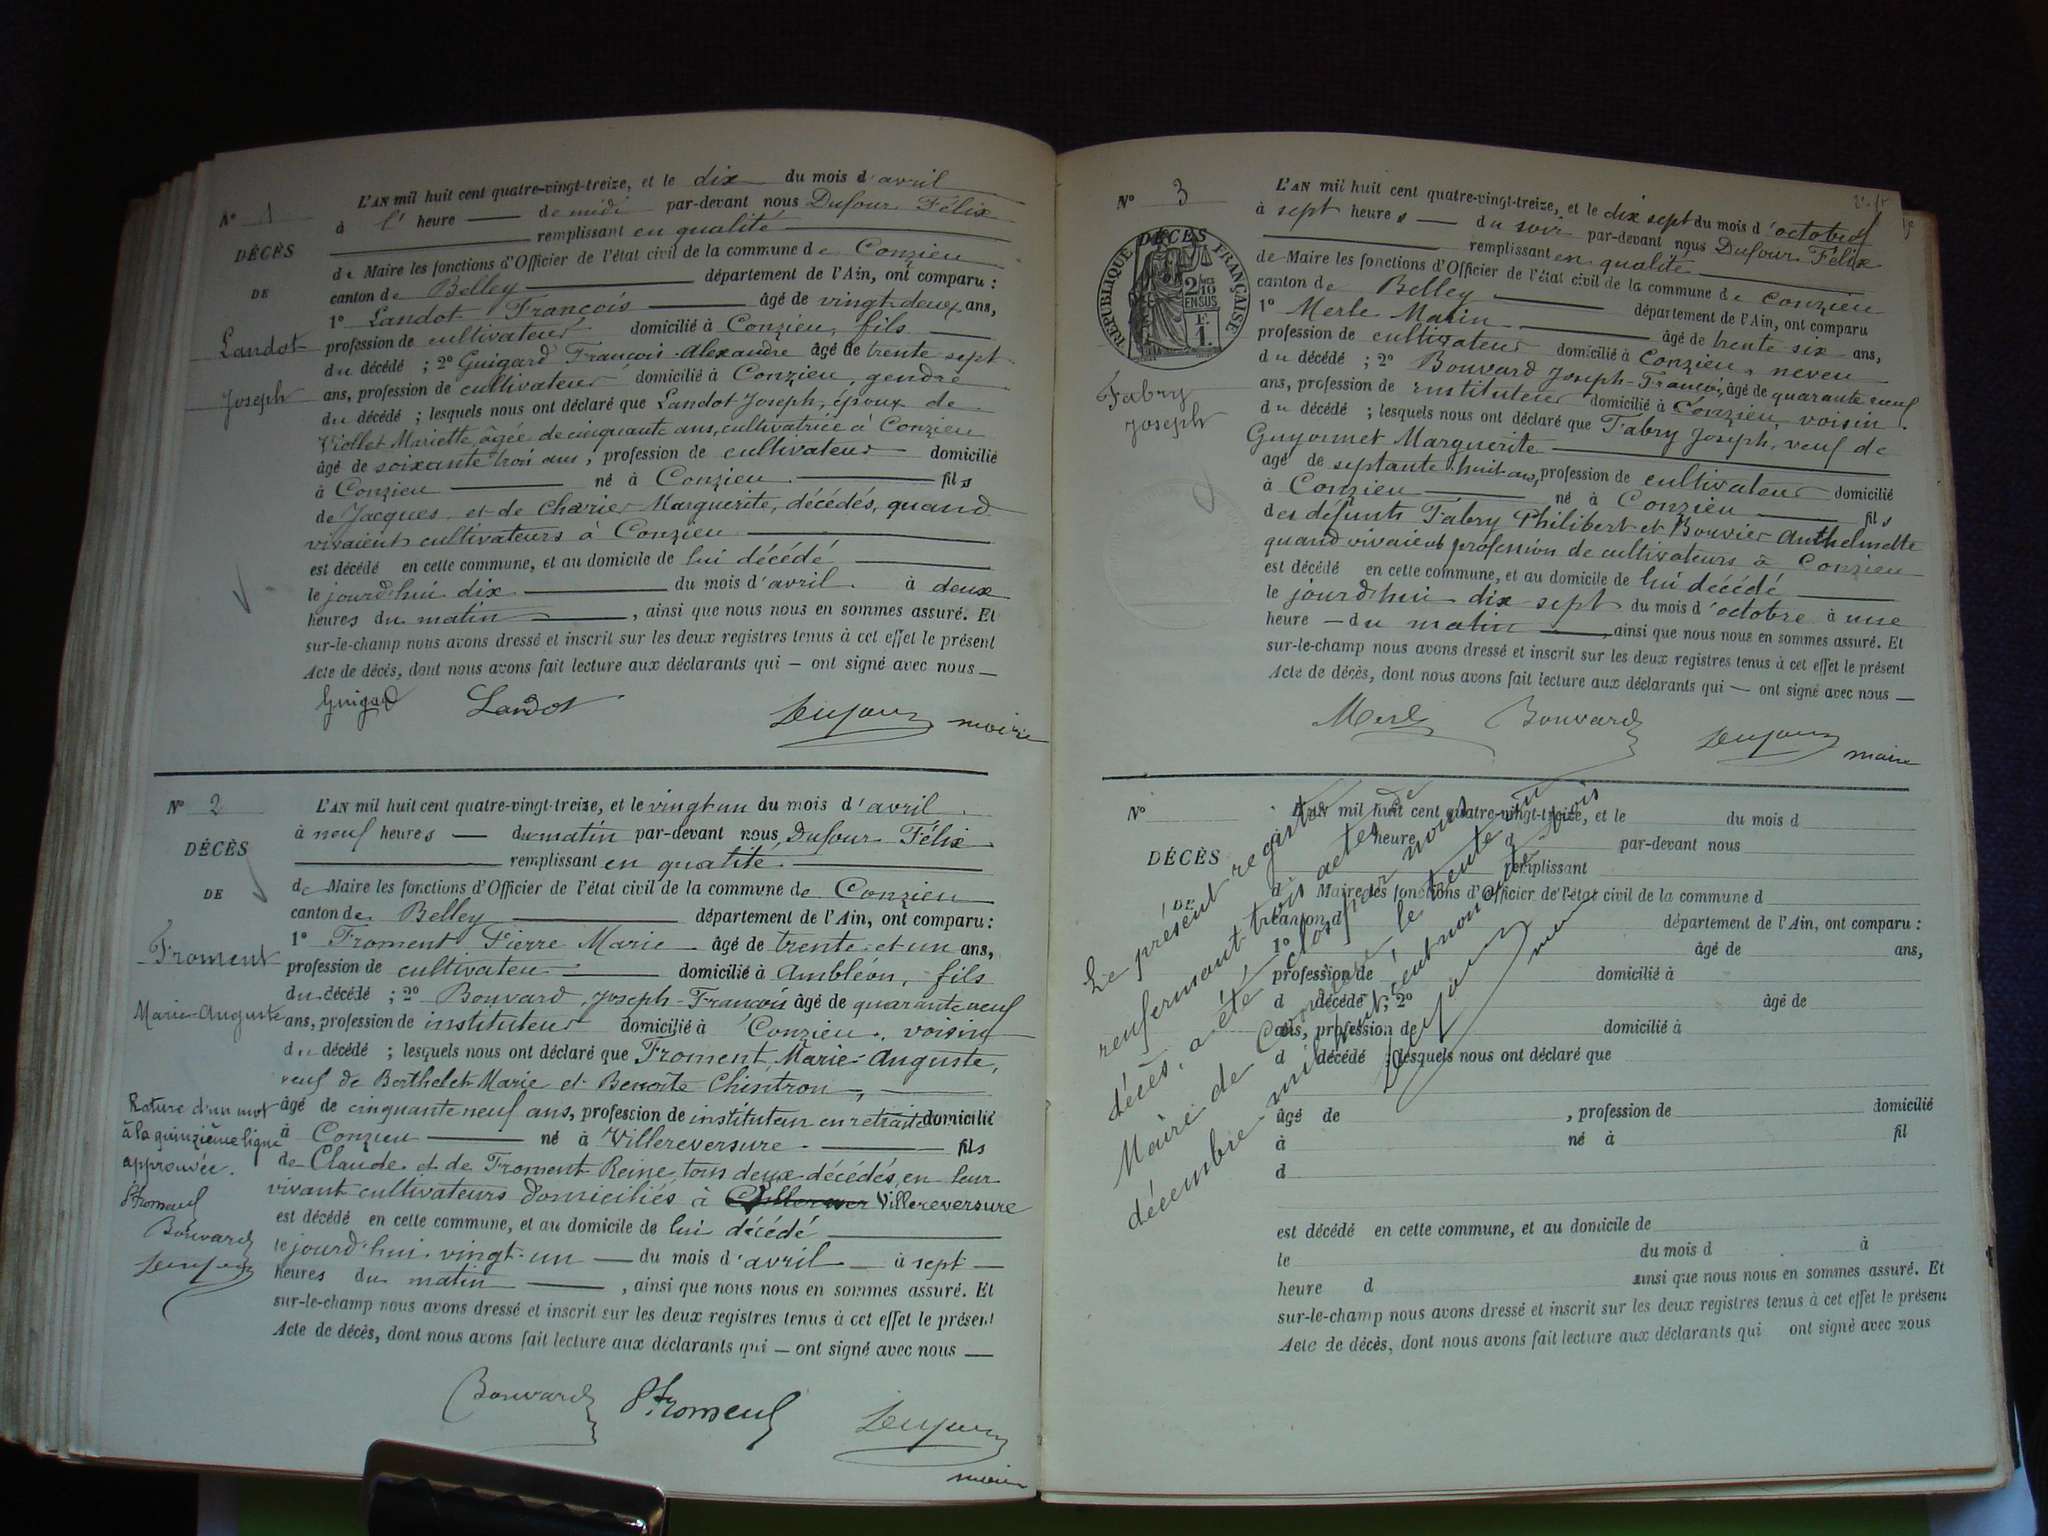 N° 1
DÉCÈS
DE
Landot
Joseph
L'AN mil huit cent quatre-vingt-treize, et le dix du mois d'avril
à l' heure de midi par-devant nous Dufour Félix
remplissant en qualité
de Maire les fonctions d'Officier de l'état civil de la commune de Conzieu
canton de Belley département de l'Ain, ont comparu :
1° Landot François âgé de vingt-deux ans,
profession de cultivateur domicilié à Conzieu, fils
du décédé ; 2° Guigard François-Alexandre âgé de trente sept
ans, profession de cultivateur domicilié à Conzieu, gendre
du décédé ; lesquels nous ont déclaré que Landot Joseph, époux de
Viollet Mariette, âgée de cinquante ans, cultivatrice à Conzieu
âgé de soixante trois ans, profession de cultivateur domicilié
à Conzieu né à Conzieu fils
de Jacques et de Marguerite, décédés, quand
vivaient cultivateurs à Conzieu
est décédé en cette commune, et au domicile de lui décédé
le jourd'hui dix du mois d'avril à deux
heures du matin, ainsi que nous nous en sommes assuré. Et
sur-le-champ nous avons dressé et inscrit sur les deux registres tenus à cet effet le présent
Acte de décès, dont nous avons fait lecture aux déclarants qui — ont signé avec nous —
Guigard Landot Dufour maire
N° 2
DÉCÈS
DE
Froment
Marie-Auguste
L'AN mil huit cent quatre-vingt-treize, et le vingt-un du mois d'avril
à neuf heures du matin par-devant nous, Dufour Félix
remplissant en qualité
de Maire les fonctions d'Officier de l'état civil de la commune de Conzieu
canton de Belley département de l'Ain, ont comparu :
1° Froment Pierre Marie âgé de trente-et-un ans,
profession de cultivateur domicilié à Ambléon, fils
du décédé ; 2° Bouvard, Joseph-François âgé de quarante neuf
ans, profession de instituteur domicilié à Conzieu, voisin
du décédé ; lesquels nous ont déclaré que Froment, Marie-Auguste,
veuf de Berthelet Marie et Benoîte Chintron,
âgé de cinquante neuf ans, profession de instituteur en retraite domicilié
à Conzieu né à Villereversure fils
de Claude et de Froment Reine, tous deux décédés, en leur
vivant cultivateurs domiciliés à Villereversure
est décédé en cette commune, et au domicile de lui décédé
le jourd'hui vingt-un du mois d'avril à sept
heures du matin, ainsi que nous nous en sommes assuré. Et
sur-le-champ nous avons dressé et inscrit sur les deux registres tenus à cet effet le présent
Acte de décès, dont nous avons fait lecture aux déclarants qui — ont signé avec nous —
Rature d'un mot
à la quinzième ligne
approuvée.
Froment
Bouvard
Dufour
Bouvard Froment Dufour
maire
N° 3
DÉCÈS
RÉPUBLIQUE FRANÇAISE
2/10
EN SUS
F.
1.
Fabry
Joseph
L'AN mil huit cent quatre-vingt-treize, et le dix sept du mois d'octobre
à sept heures du soir par-devant nous Dufour Félix
remplissant en qualité
de Maire les fonctions d'Officier de l'état civil de la commune de Conzieu
canton de Belley département de l'Ain, ont comparu
1° Merle Marin âgé de trente six ans,
profession de cultivateur domicilié à Conzieu, neveu
du décédé ; 2° Bouvard Joseph-François, âgé de quarante neuf
ans, profession de instituteur domicilié à Conzieu, voisin
du décédé ; lesquels nous ont déclaré que Fabry Joseph, veuf de
Guyonnet Marguerite
âgé de septante-huit ans, profession de cultivateur domicilié
à Conzieu né à Conzieu fils
des défunts Fabry Philibert et Bouvier Anthelmette
quand vivaient profession de cultivateurs à Conzieu
est décédé en cette commune, et au domicile de lui décédé
le jourd'hui dix sept du mois d'octobre à une
heure du matin, ainsi que nous nous en sommes assuré. Et
sur-le-champ nous avons dressé et inscrit sur les deux registres tenus à cet effet le présent
Acte de décès, dont nous avons fait lecture aux déclarants qui — ont signé avec nous —
Merle Bouvard Dufour maire
N°
DÉCÈS
DE
L'AN mil huit cent quatre-vingt-treize, et le du mois d
heure d par-devant nous
remplissant
d Maire les fonctions d'Officier de l'état civil de la commune d
canton d département de l'Ain, ont comparu :
1° âgé de ans,
profession de domicilié à
d décédé ; 2° âgé de
ans, profession de domicilié à
d décédé ; lesquels nous ont déclaré que
âgé de , profession de domicilié
à né à fil
d
est décédé en cette commune, et au domicile de
le du mois d à
heure d ainsi que nous nous en sommes assuré. Et
sur-le-champ nous avons dressé et inscrit sur les deux registres tenus à cet effet le présent
Acte de décès, dont nous avons fait lecture aux déclarants qui ont signé avec nous
Le présent registre
renfermant trois actes de
décès, a été clos par nous
Maire de Conzieu le trente un
décembre mil huit cent nonante trois
Dufour maire